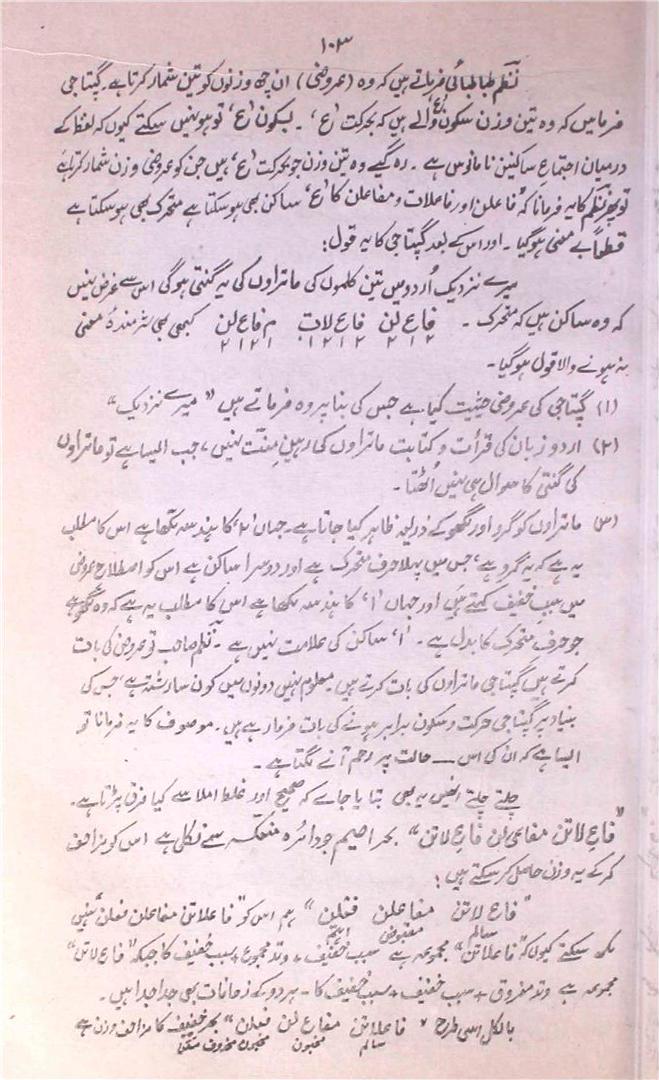 ۱۰۳
نظم طباطبائی فرماتے ہیں کہ وہ (عروضی) ان چھ وزنوں کو تین شمار کرتا ہے۔ گپتا جی
فرمائیں کہ وہ تین وزن سکون 'ع' والے ہیں کہ بحرکت 'ع'۔ بسکون 'ع' تو ہو نہیں سکتے کیوں کہ لفظ کے
درمیان اجتماع ساکنین نامانوس ہے۔ رہ گیے وہ تین وزن جو بحرکت 'ع' ہیں جن کو عروضی وزن شمار کرتا ہے
تو پھر نظم کا یہ فرمانا کہ فاعلن اور فاعلات و مفاعلن کا 'ع' ساکن بھی ہو سکتا ہے متحرک بھی ہو سکتا ہے
قطعاً بے معنی ہو گیا۔ اور اس کے بعد گپتا جی کا یہ قول:
میرے نزدیک اُردو میں تین کلموں کی ماتراوں کی یہ گنتی ہو گی اس سے غرض نہیں
کہ وہ ساکن ہیں کہ متحرک۔ فاع لن فاع لات م فاع لن کبھی بھی شرمندۂ معنی
۲ ۱ ۲ ۱ ۲ ۱ ۲ ۲ ۱ ۲ ۱
نہ ہونے والا قول ہو گیا۔
(۱) گپتا جی کی عروضی حیثیت کیا ہے جس کی بنا پر وہ فرماتے ہیں "میرے نزدیک"
(۲) اردو زبان کی قرأت و کتابت ماتراوں کی رہینِ منّت نہیں، جب ایسا ہے تو ماتراوں
کی گنتی کا سوال ہی نہیں اُٹھتا۔
(۳) ماتراوں کو گرو اور لگھو کے ذریعہ ظاہر کیا جاتا ہے۔ جہاں '۲' کا ہندسہ لکھا ہے اس کا مطلب
یہ ہے کہ یہ گرو ہے، جس میں پہلا حرف متحرک ہے اور دوسرا ساکن ہے اس کو اصطلاح عروض
میں سببِ خفیف کہتے ہیں اور جہاں '۱' کا ہندسہ لکھا ہے اس کا مطلب یہ ہے کہ وہ لگھو ہے
جو حرف متحرک کا بدل ہے۔ '۱' ساکن کی علامت نہیں ہے۔ نظم صاحب تو عروض کی بات
کرتے ہیں گپتا جی ماتراوں کی بات کرتے ہیں۔ معلوم نہیں دونوں میں کون سا رشتہ ہے، جس کی
بنیاد پر گپتا جی حرکت و سکون برابر ہونے کی بات فرما رہے ہیں۔ موصوف کا یہ فرمانا تو
ایسا ہے کہ ان کی اس — حالت پر رحم آنے لگتا ہے۔
چلتے چلتے انھیں یہ بھی بتایا جاے کہ صحیح اور غلط املا سے کیا فرق پڑتا ہے۔
"فاعِ لاتن مفاعی لن فاعِ لاتن" بحر اصیم جو دائرہ منعکسہ سے نکلی ہے اس کو مزاحف
کر کے یہ وزن حاصل کر سکتے ہیں:
"فاع لاتن مفاعلن فعلن" ہم اس کو "فاعلاتن مفاعلن فعلن" نہیں
سالم مقبوض
لکھ سکتے کیوں کہ "فاعلاتن" مجموعہ ہے سبب خفیف + وتد مجموع + سبب خفیف کا جبکہ "فاع لاتن"
مجموعہ ہے وتد مفروق + سبب خفیف + سبب خفیف کا۔ ہر دو کے زحافات بھی جدا جدا ہیں۔
بالکل اسی طرح "فاعلاتن مفاع لن فعلن" بحر خفیف کا مزاحف وزن ہے
سالم مخبون مخبون محذوف